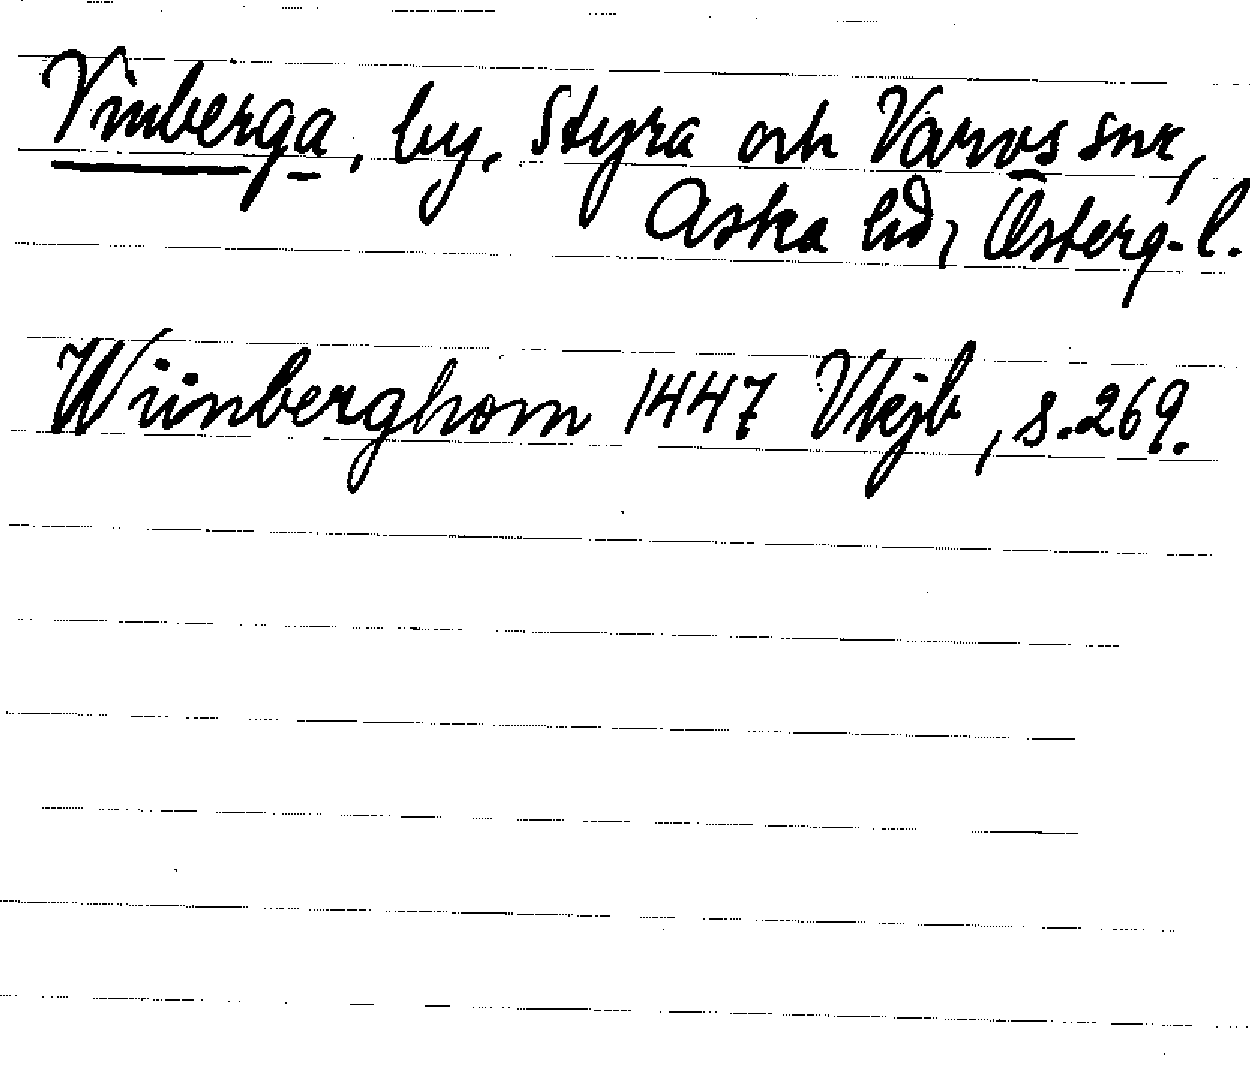 Vinberga, by, Styra och Varvs snr,
Aska hd, Österg.l.
Wiinberghom 1447 Vkjb, s.269.